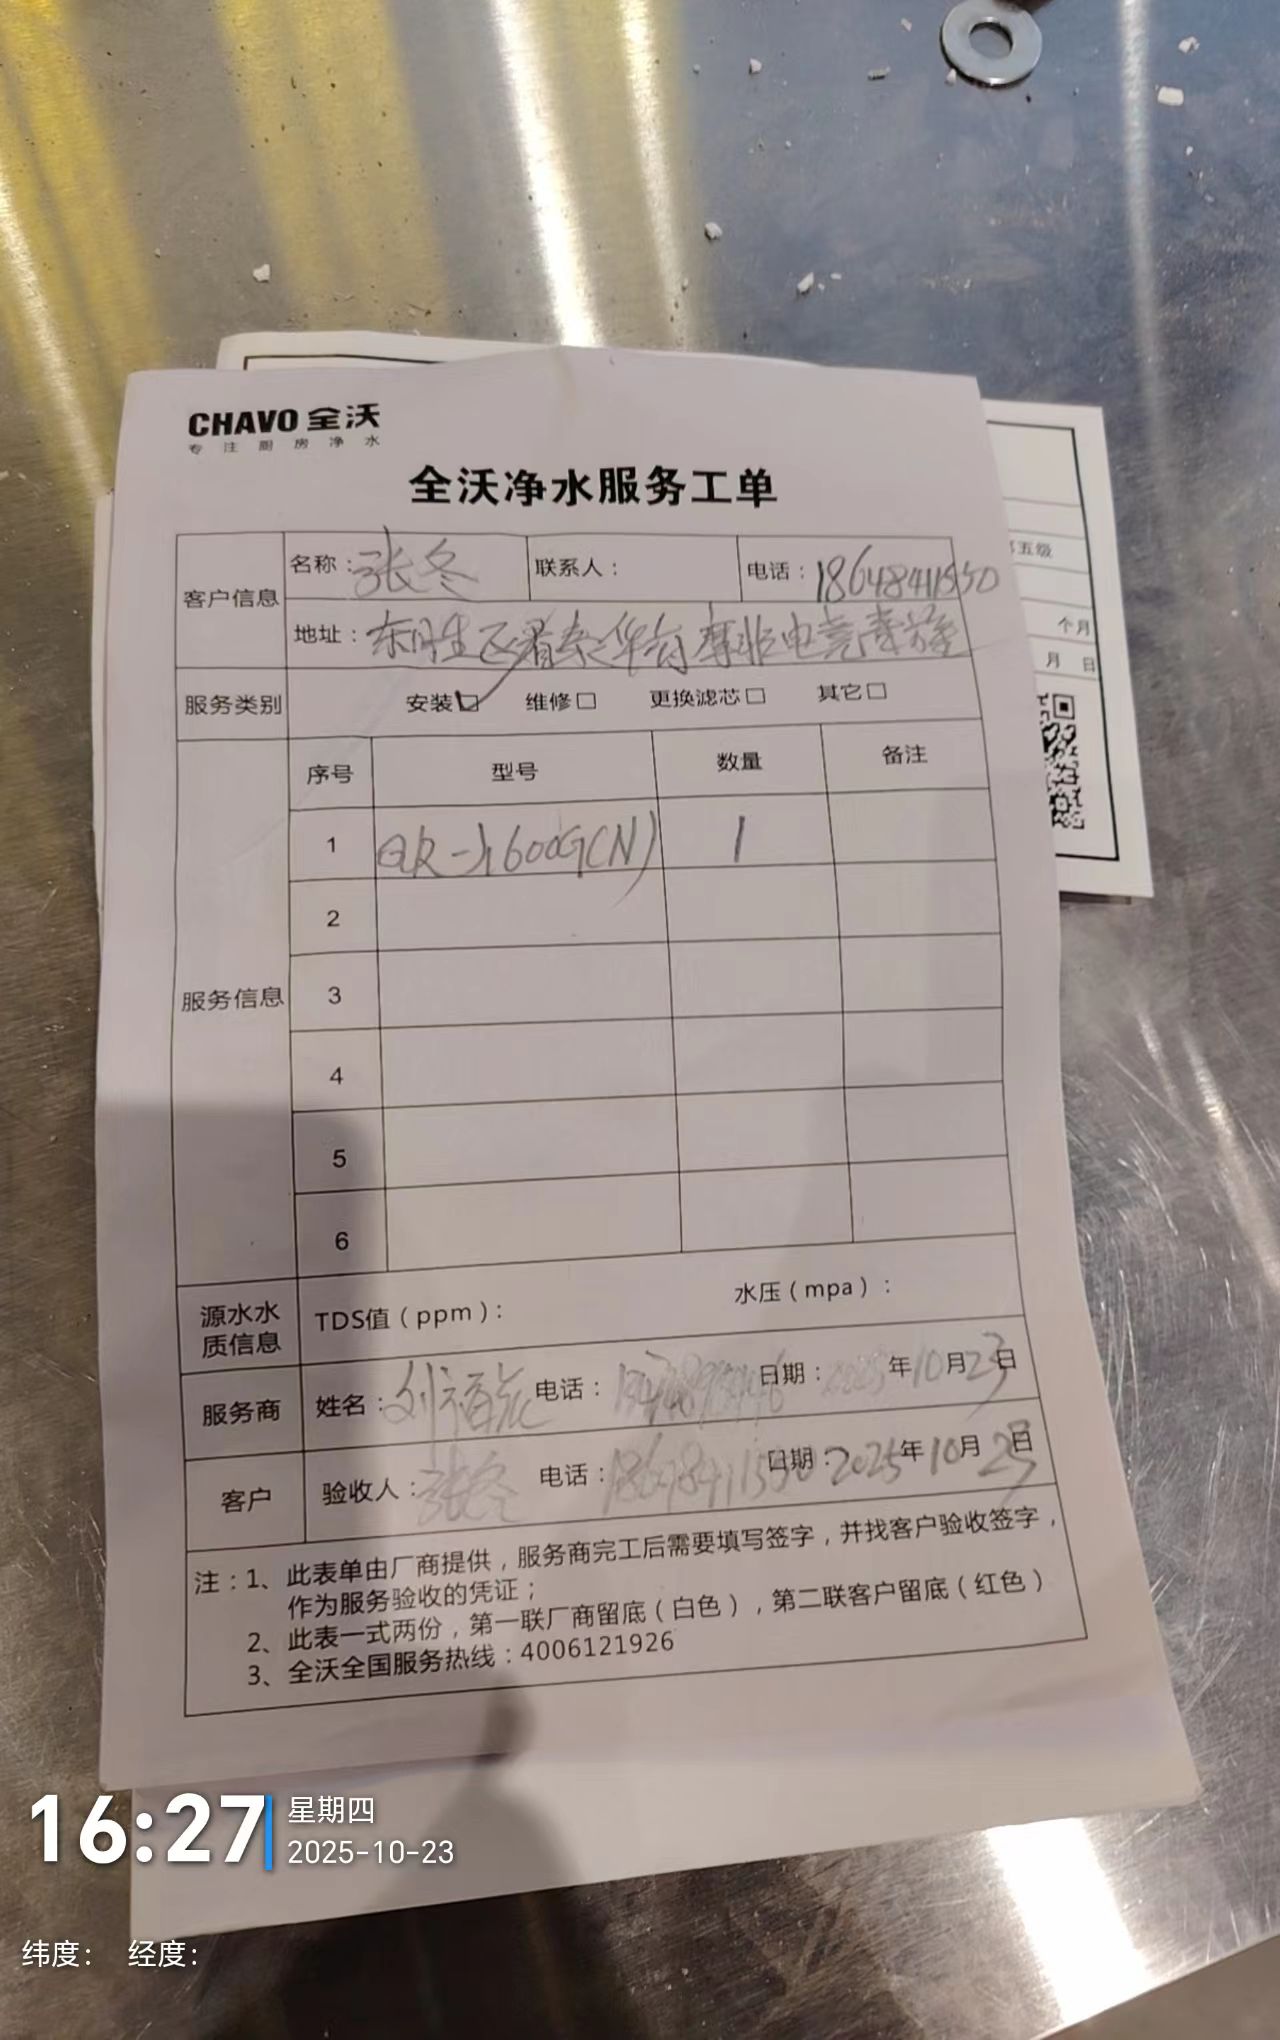 CHAVO 全沃
专注厨房净水
全沃净水服务工单
客户信息 名称：张冬 联系人： 电话：18648411550
地址：东胜区 摩非电竞
服务类别 安装☑ 维修□ 更换滤芯□ 其它□
服务信息 序号 型号 数量 备注
1 600G(N) 1
2
3
4
5
6
源水水质信息 TDS值（ppm）： 水压（mpa）：
服务商 姓名：刘 电话： 日期：2025年10月23日
客户 验收人：张冬 电话： 日期：2025年10月23日
注：1、此表单由厂商提供，服务商完工后需要填写签字，并找客户验收签字，
作为服务验收的凭证；
2、此表一式两份，第一联厂商留底（白色），第二联客户留底（红色）
3、全沃全国服务热线：4006121926
五级
个月
月 日
16:27 星期四
2025-10-23
纬度： 经度：